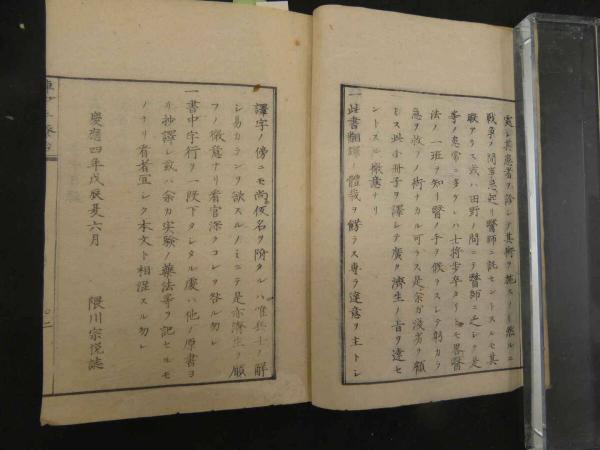 実ニ其患者ヲ診シテ其術ヲ施スノミ然ルニ
戦争ノ間事急起リ醫師ニ託セントスルモ其
暇アラス或ハ田野ノ間ニテ醫師ニ乏シク是
等ノ患常ニ多クレハ士将歩卒タリトモ畧醫
法ノ一班ヲ知リ醫ノ手ヲ假ラスシテ躬カラ
急ヲ救フノ術ナカル可ラス是余カ浅劣ヲ顧
ミス此小冊子ヲ譯シテ廣ク濟生ノ旨ヲ達セ
ントスルノ微意ナリ
一此書翻譯ノ體裁ヲ餝ラス専ラ達意ヲ主トシ
譯字ノ傍ニモ尚仮名ヲ附タルハ唯兵士ノ解
シ易カランヲ欲スルノミニテ是亦濟生ヲ願
フノ微意ナリ看官深クコレヲ咎ル勿レ
一書中字行ヲ一段下タレタル處ハ他ノ原書ヨ
リ抄譯シ或ハ余カ実験ノ藥法等ヲ記セルモ
ノナリ看者宜シク本文ト相混スル勿レ
慶應四年戊辰夏六月 隈川宗悦誌